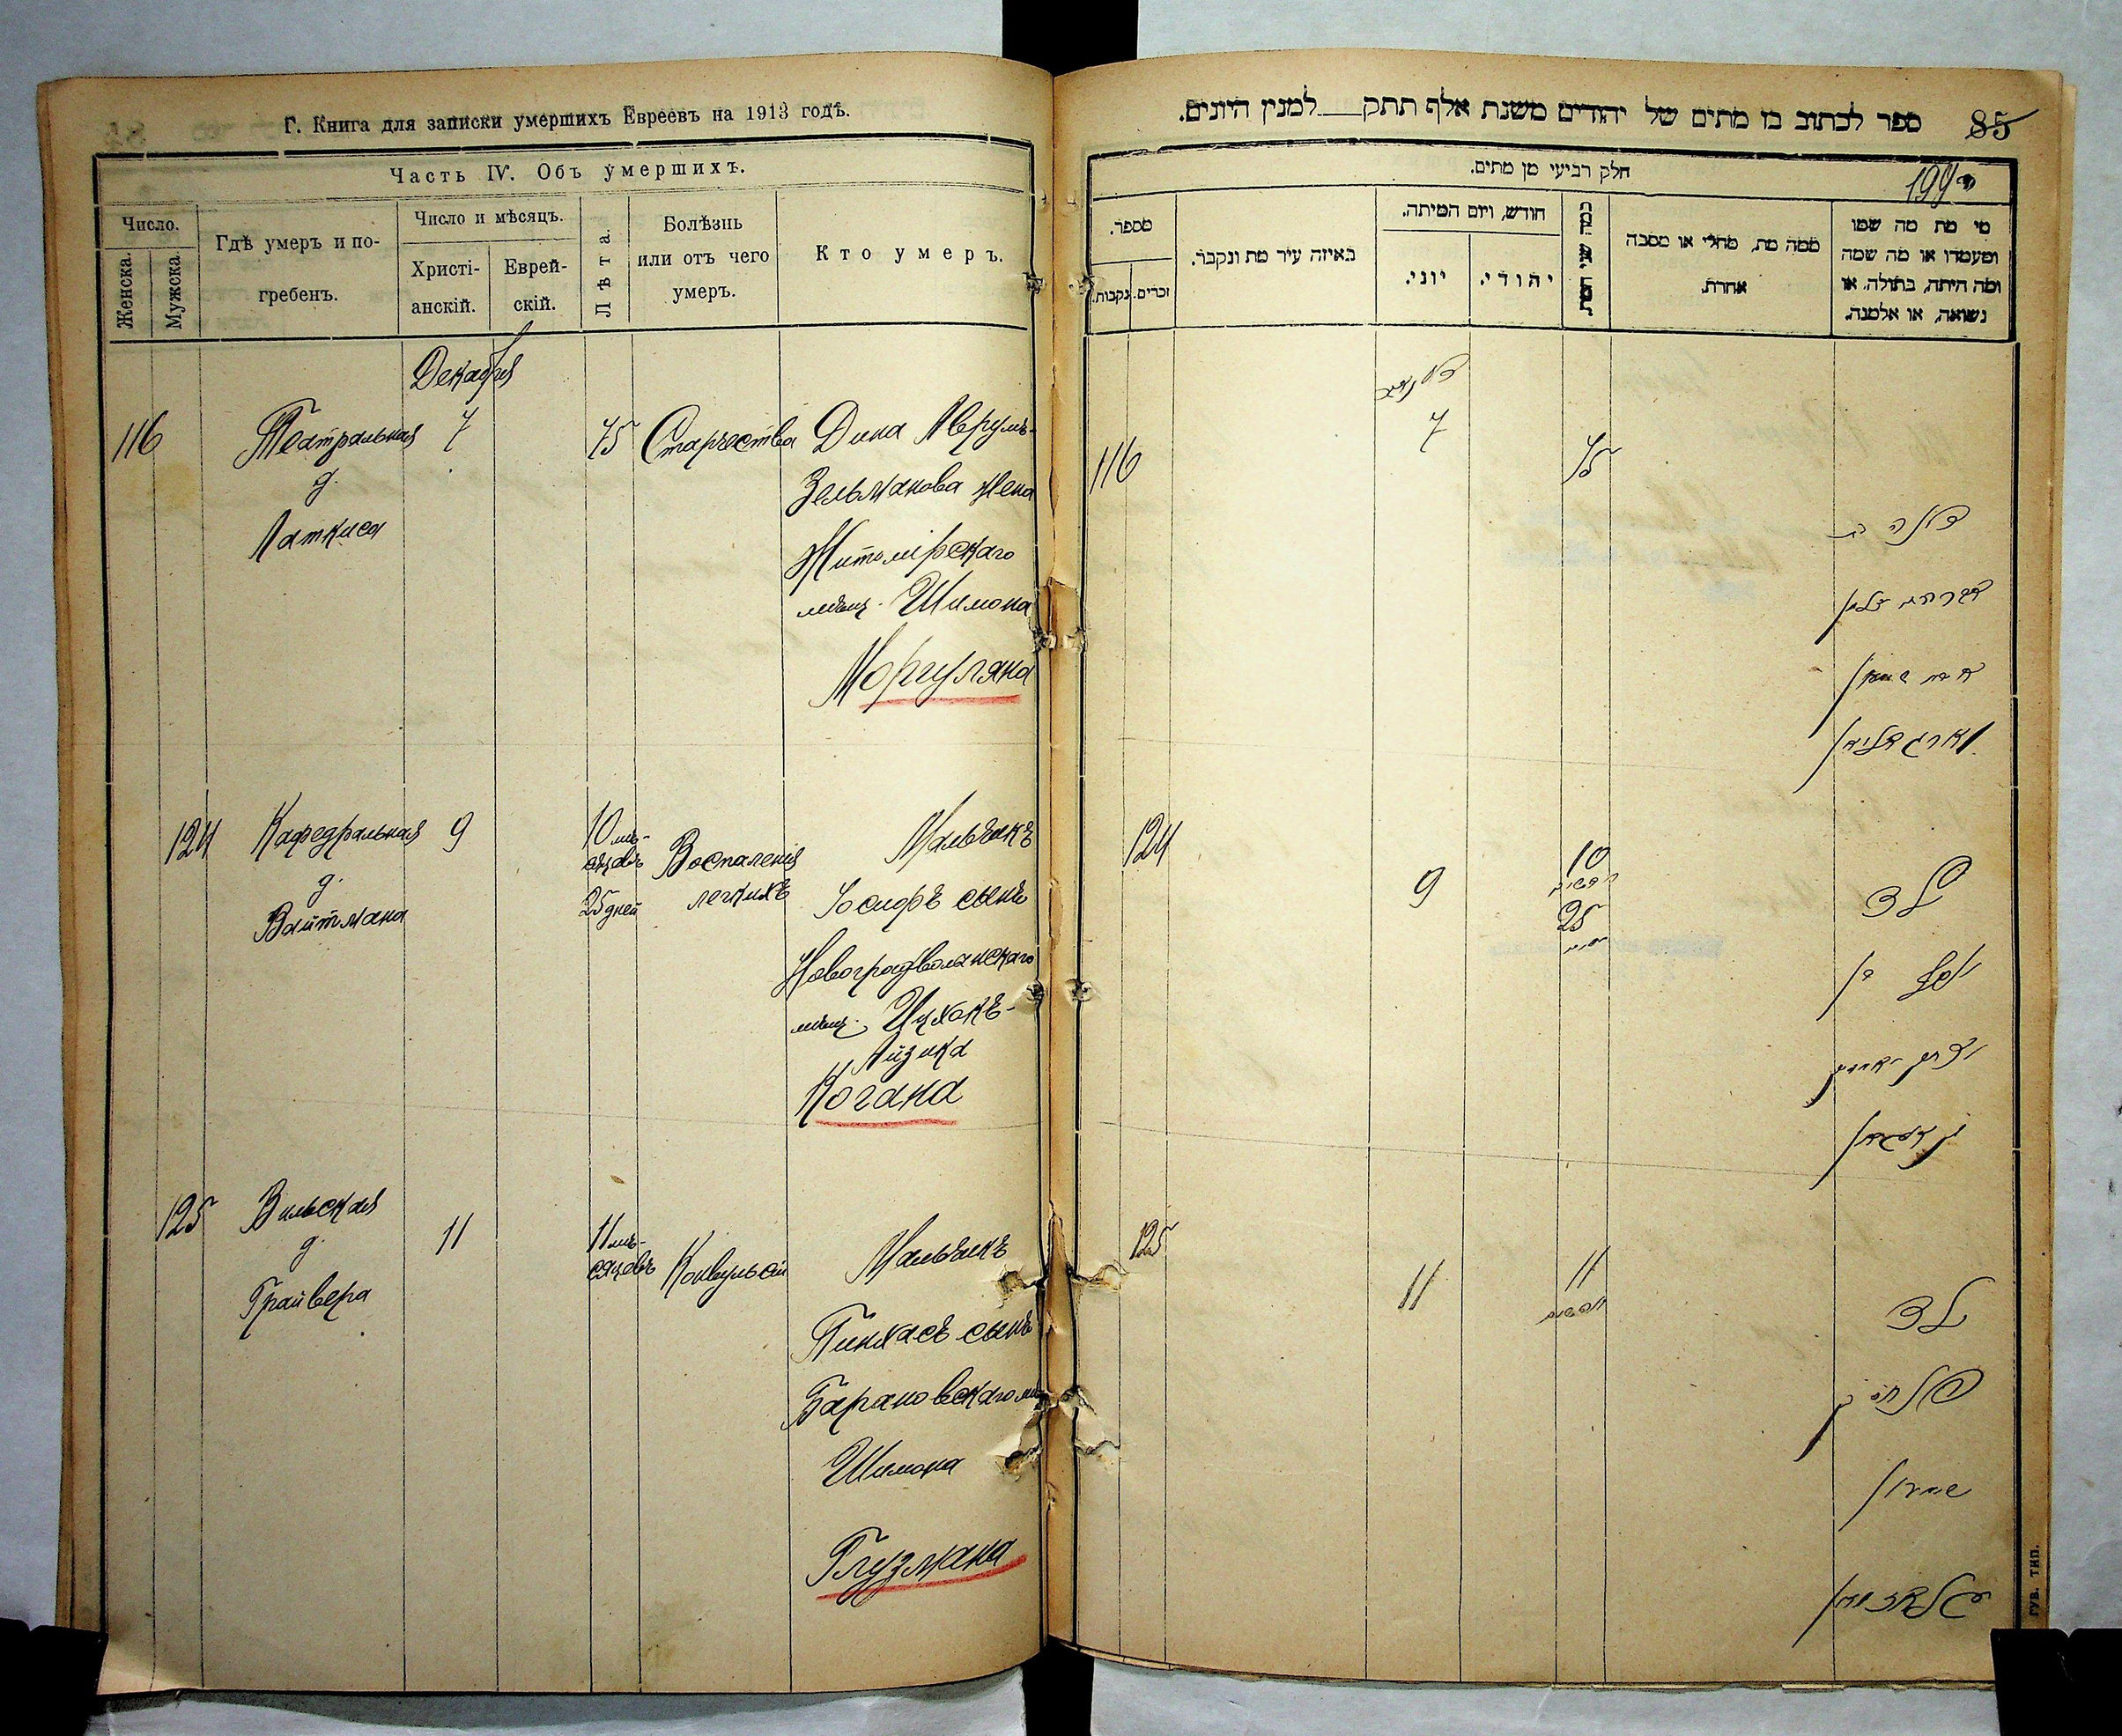 Г. Книга для записки умершихъ Евреевъ на 1913 годъ.
Часть IV. Объ умершихъ.
Число.
Женска.
Мужска.
Гдѣ умеръ и по-
гребенъ.
Число и мѣсяцъ.
Христі-
анскій.
Еврей-
скій.
Лѣта.
Болѣзнь
или отъ чего
умеръ.
Кто умеръ.
Декабря
116
Театральная
д.
Латкиса
7
75
Старчества
Дина Аврумъ-
Зельманова жена
Житомірскаго
мѣщ. Шимона
Моргуляна
124
Кафедральная
д.
Вайтмана
9
10 мѣ-
сяцевъ
25 дней
Воспаленія
легкихъ
Мальчикъ
Іосифъ сынъ
Новоградволынскаго
мѣщ. Ицхокъ-
Айзика
Когана
125
Вильская
д.
Грайвера
11
11 мѣ-
сяцевъ
Конвульсій
Мальчикъ
Пинхасъ сынъ
Барановскаго мѣщ
Шимона
Глузмана
ספר לכתוב בו מתים של יהודים משנת אלף תתק למנין היונים.
85
חלק רביעי מן מתים.
199
מספר.
זכרים.
נקבות.
באיזה עיר מת ונקבר.
חודש, ויום המיתה.
יוני.
יהודי.
כמה שני המת.
ממה מת, מחלי או מסבה
אחרת.
מי מת מה שמו
ומעמדו או מה שמה
ומה היתה, בתולה, או
נשואה, או אלמנה.
116
7
75
דינה בת
אברהם זלמן
מארגוליאן
124
9
10
25
ילד
יוסף בן
יצחק אייזיק
קאגאן
125
11
11
ילד
פנחס בן
שמעון
גלוזמאן
губ. тип.